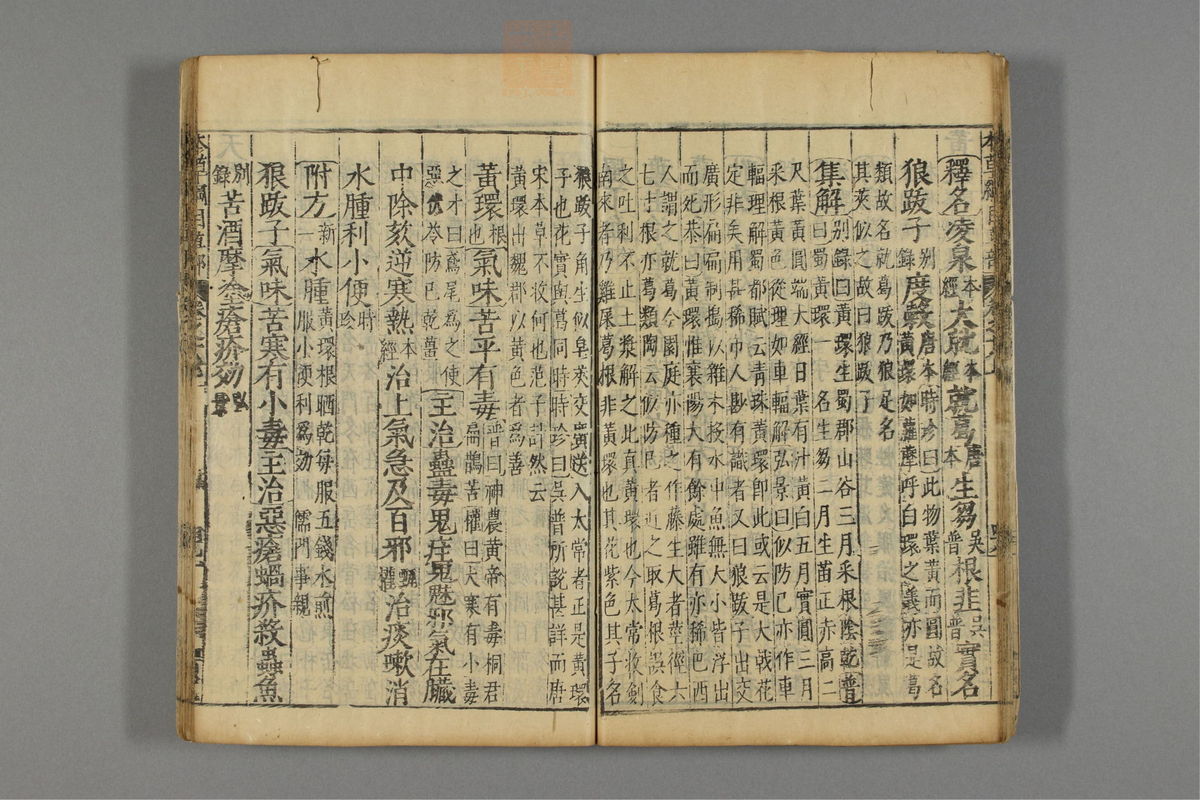 釋名凌泉本經大就本經就葛唐本生芻吳普根韭吳普實名
狼跋子別錄度穀唐本時珍曰此物葉黃而圓故名黃環如蘿摩呼白環之義亦是葛
類故名就葛跋乃狼足名其莢似之故曰狼跋子
集解別錄曰黃環生蜀郡山谷三月采根陰乾普曰蜀黃環一名生芻二月生苗正赤高二
尺葉黃圓端大經日葉有汁黃白五月實圓三月采根黃色從理如車輻解弘景曰似防己亦作車
輻理解蜀都賦云青珠黃環即此或云是大戟花定非矣用甚稀市人尠有識者又曰狼跋子出交
廣形扁扁制搗以雜木投水中魚無大小皆浮出而死恭曰黃環惟襄陽大有餘處雖有亦稀巴西
人謂之就葛今園庭亦種之作藤生大者莖徑六七寸根亦葛類陶云似防己者近之取葛根誤食
之吐利不止土漿解之此真黃環也今太常收劍南來者乃雞屎葛根非黃環也其花紫色其子名
狼跋子角生似皂莢交廣送入太常者正是黃環子也花實與葛同時時珍曰吳普所說甚詳而唐
宋本草不收何也范子計然云黃環出魏郡以黃色者為善
黃環根也氣味苦平有毒普曰神農黃帝有毒桐君扁鵲苦權曰大寒有小毒
之才曰鳶尾為之使惡茯苓防己乾薑主治蠱毒鬼疰鬼魅邪氣在臟
中除欬逆寒熱本經治上氣急及百邪甄權治痰嗽消
水腫利小便時珍
附方新一水腫黃環根晒乾每服五錢水煎服小便利為効儒門事親
狼跋子氣味苦寒有小毒主治惡瘡蝸疥殺蟲魚
別錄苦酒摩塗瘡疥効弘景